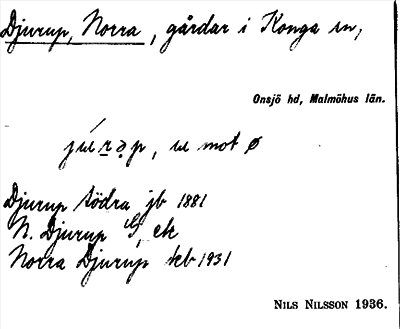 Djurup, Norra, gårdar i Konga sn,
Onsjö hd, Malmöhus län.
mot ø
Djurup södra jb 1881
N. Djurup GS, ek
Norra Djurup teb 1931
NILS NILSSON 1936.